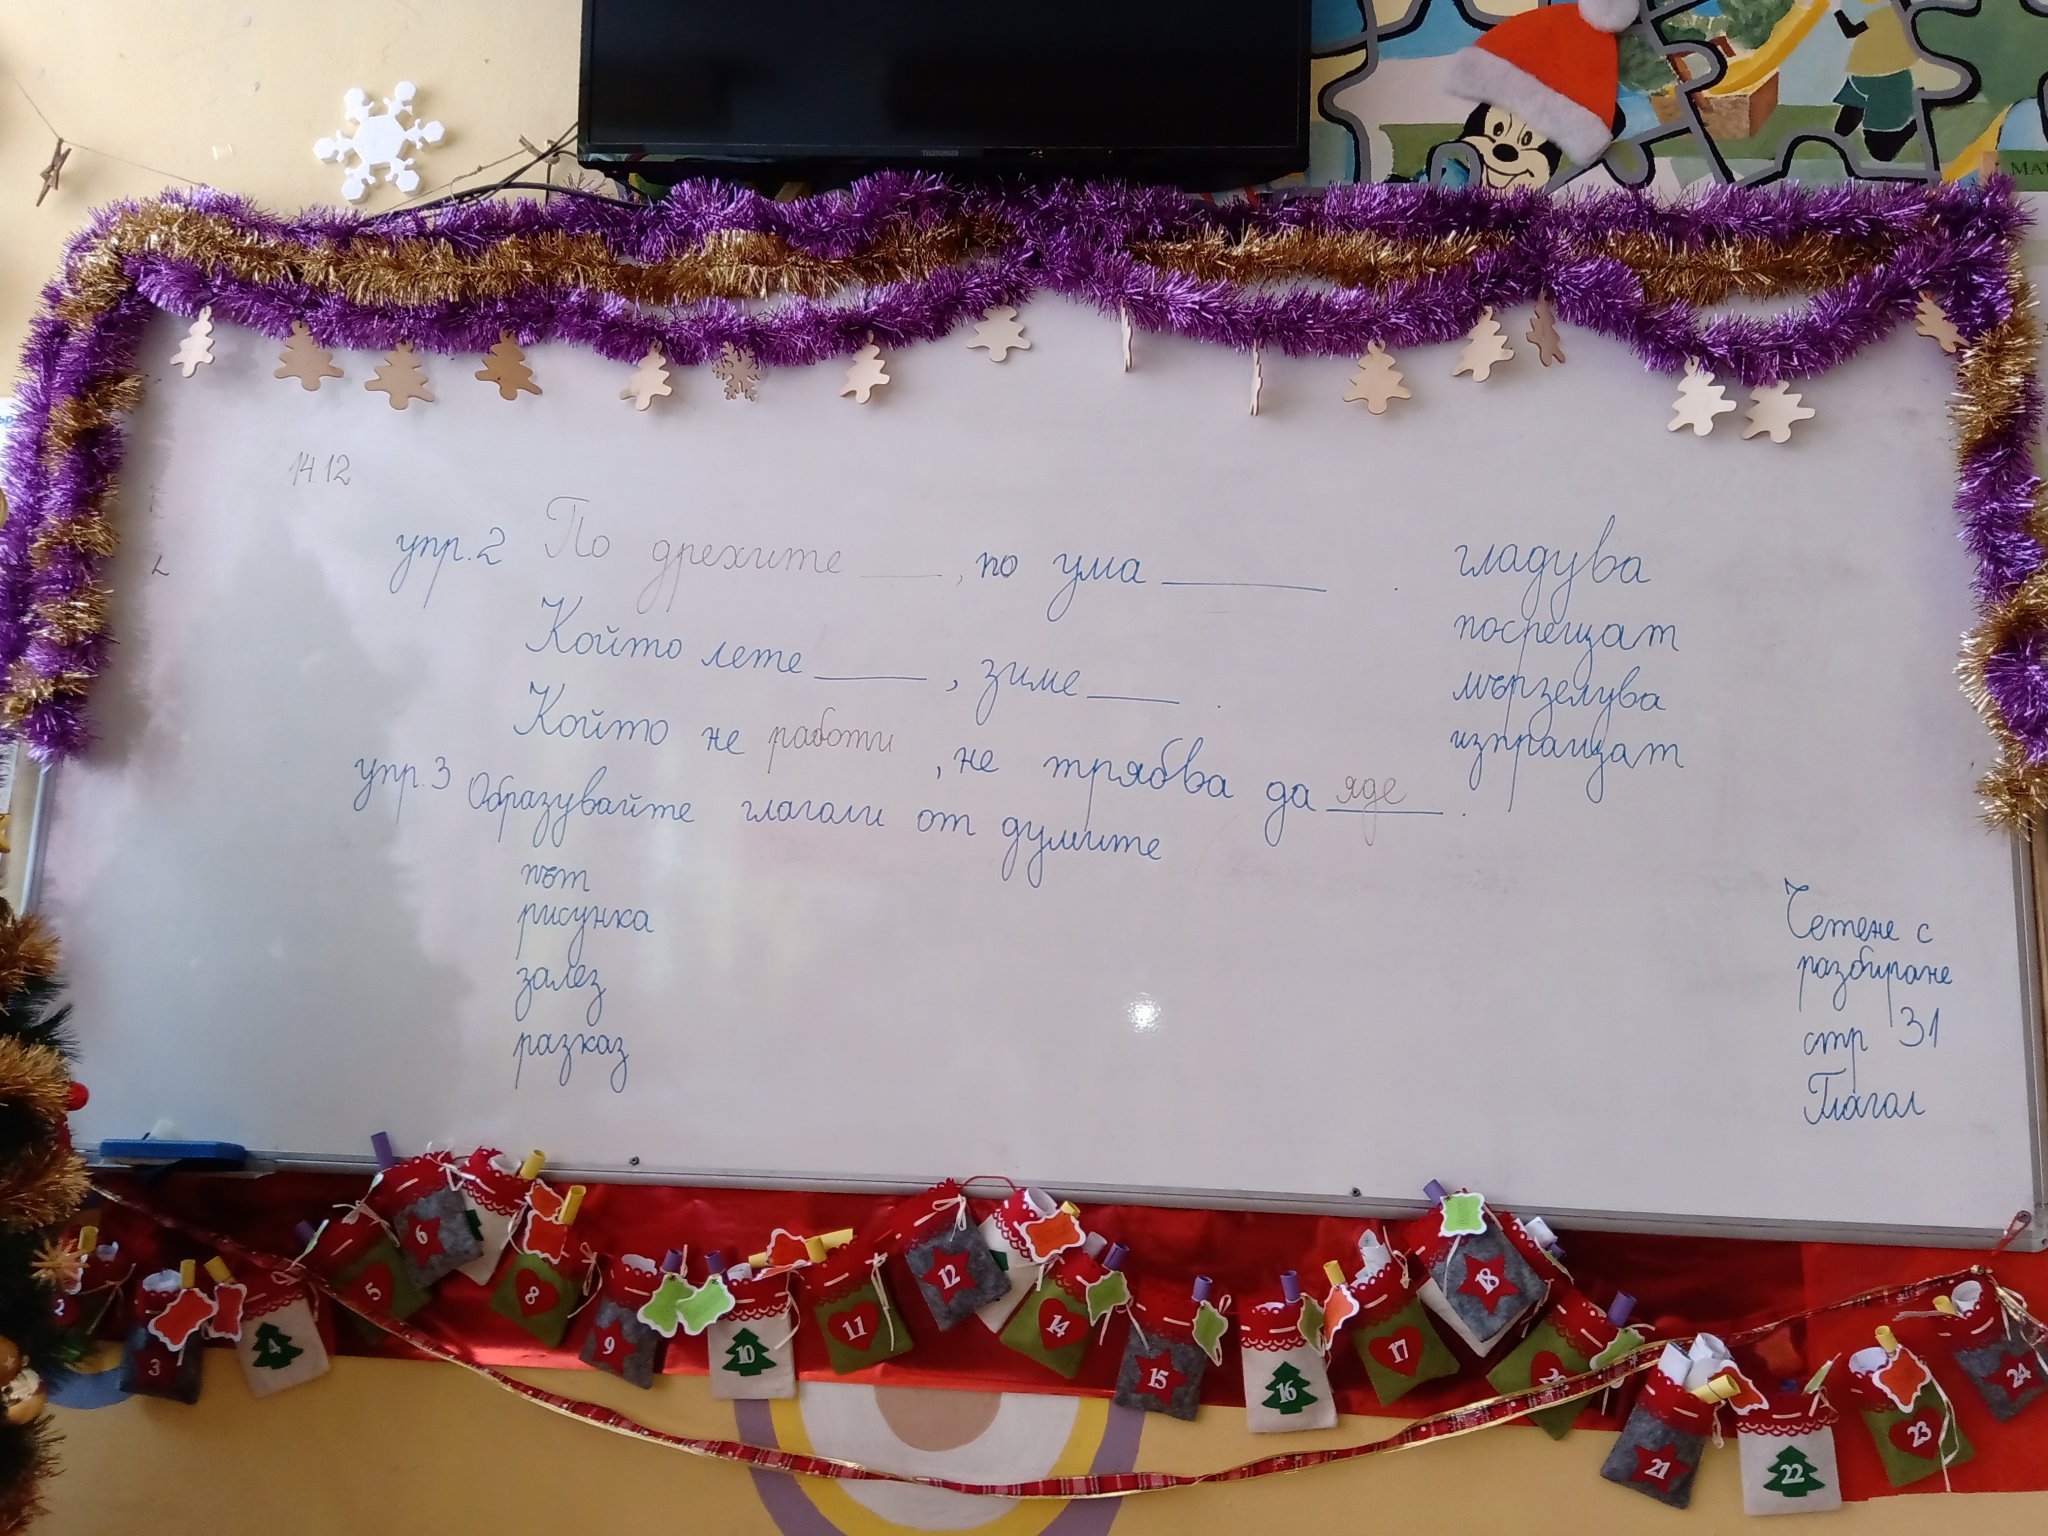 TELEFUNKEN
14.12
упр.2 По дрехите ____, по ума ____.
Който лете ____, зиме ____.
Който не работи, не трябва да яде.
гладува
посрещат
мързелува
изпращат
упр.3 Образувайте глагали от думите
път
рисунка
залез
разказ
Четене с
разбиране
стр 31
Глагол
2
3
4
5
6
8
9
10
11
12
14
15
16
17
18
21
22
23
24